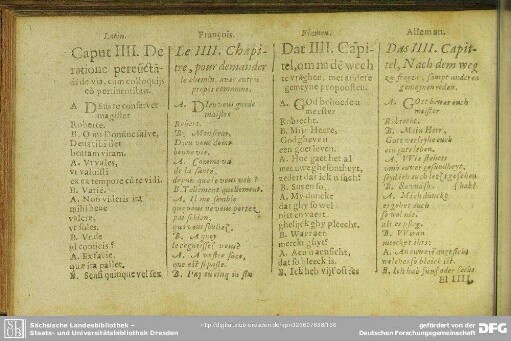 Latin.
Caput IIII. De
ratione percūctā-
di de via, cum colloquijs
eò pertinentibus.
A. Deus te conservet
magister
Roberte.
B. O mi Domine salve,
Deus tibi det
beatam vitam.
A. Vt vales,
vt valuisti
ex eo tempore quo te vidi.
B. Variè.
A. Non videris ita
mihi bene
valere,
vt soles.
B. Vnde
id conijcis?
A. Ex facie,
quæ ita pallet.
B. Sensi quinque vel sex
François.
Le IIII. Chapi-
tre, pour demander
le chemin, avec autres
propos communs.
A. Dieu vous garde
maistre
Robert.
B. Monsieur,
Dieu vous done
bonne vie.
A. Comme va
de la santé,
depuis que je vous veis?
B. Tellement quellement.
A. Il me semble
que vous ne vous portez
pas si bien,
que vous souliez.
B. A quoy
le cognoissez vous?
A. A vostre face,
que est si pasle.
B. J'ay eu cinq ou six
Flamen.
Dat IIII. Capi-
tel, om na dē wech
te vraghen, met andere
gemeyne propoosten.
A. God behoede u
meester
Robrecht.
B. Mijn Heere,
God gheve u
een goet leven.
A. Hoe gaet het al
met uwe ghesontheyt,
zedert dat ick u sach?
B. So en so,
A. My dunckt
dat ghy so wel
niet en vaert,
ghelijck ghy pleecht.
B. Waer aen
merckt ghijt?
A. Aen u aensicht,
dat so bleeck is.
B. Ick heb vijf oft ses
Alleman.
Das IIII. Capit-
tel, Nach dem weg
zu fragen, sampt anderen
gemeynen reden.
A. Gott bewar euch
meister
Robrecht.
B. Mein Herr,
Gott verleyhe euch
ein guts leben.
A. Wie stehets
umb ewer gesundheyt,
seydt ich euch letzt gesehen
B. So und so. (hab?
A. Mich dunckt
es gehet euch
so wol nit,
als es pflag.
B. Waran
mercket ihrs?
A. An ewerm angesicht
welches so bleich ist.
B. Ich hab fünff oder sechs
Ei IIII
SLUB
Sächsische Landesbibliothek –
Staats- und Universitätsbibliothek Dresden
gefördert von der
Deutschen Forschungsgemeinschaft
DFG